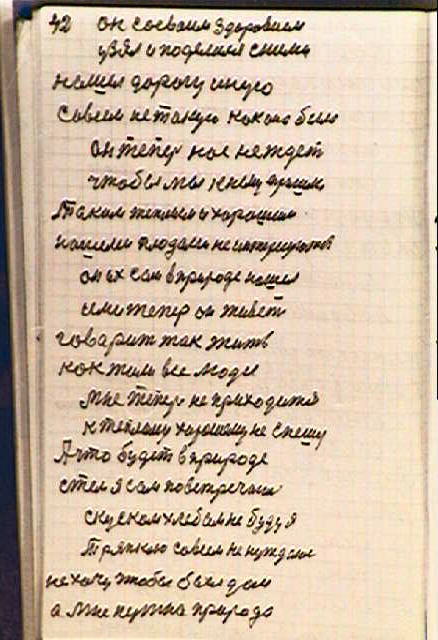 42 он своваим здоровием
узял и поделился с ними
нашил дорогу иную
Совсем не такую какая была
он тепер нас не ждет
чтобы мы к нему пришли
Таким теплым и хорошим
нашеми плодами не интересуется
он их сам в природе нашел
ими тепер он живет
говарит так жить
как жили все люди
мне тепер не приходится
к теплому хорошему не спешу
А что будет в природе
стем я сам повстречаюсь
скуском хлебом не буду я
Тряпкою совсем не нуждаюсь
не хочу чтобы был дом
а мне нужна природа